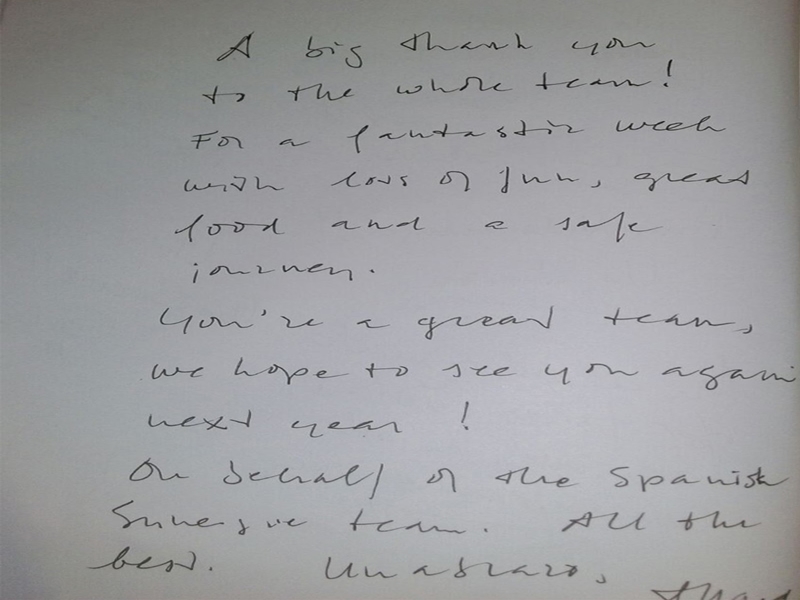 A big thank you
to the whole team!
For a fantastic week
with lots of fun, great
food and a safe
journey.
You're a great team,
we hope to see you again
next year!
On behalf of the Spanish
team. All the
best. Un abrazo,